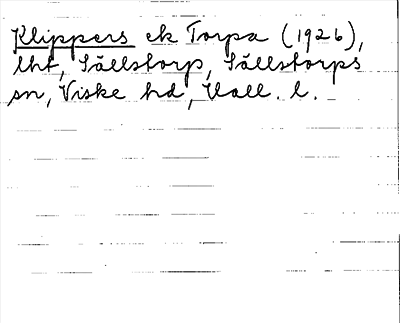 Klippers ek Torpa (1926),
lht, Sällstorp, Sällstorps
sn, Viske hd, Hall. l.